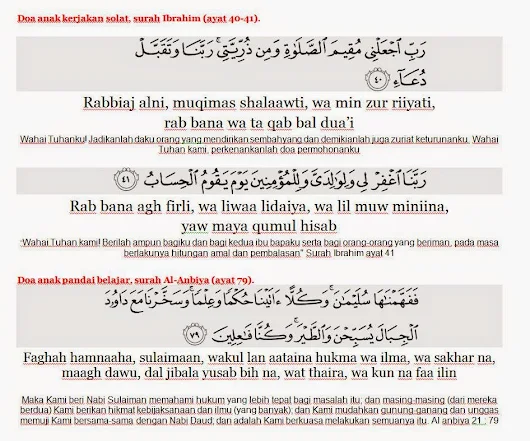 Doa anak kerjakan solat, surah Ibrahim (ayat 40-41).
رَبِّ ٱجْعَلْنِي مُقِيمَ ٱلصَّلَوٰةِ وَمِن ذُرِّيَّتِي ۚ رَبَّنَا وَتَقَبَّلْ
دُعَآءِ ٤٠
Rabbiaj alni, muqimas shalaawti, wa min zur riyyati,
rab bana wa ta qab bal dua'i
Wahai Tuhanku! Jadikanlah daku orang yang mendirikan sembahyang dan demikianlah juga zuriat keturunanku. Wahai
Tuhan kami, perkenankanlah doa permohonanku
رَبَّنَا ٱغْفِرْ لِي وَلِوَٰلِدَيَّ وَلِلْمُؤْمِنِينَ يَوْمَ يَقُومُ ٱلْحِسَابُ ٤١
Rab bana agh firli, wa liwaa lidaiya, wa lil muw miniina,
yaw maya qumul hisab
"Wahai Tuhan kami! Berilah ampun bagiku dan bagi kedua ibu bapaku serta bagi orang-orang yang beriman, pada masa
berlakunya hitungan amal dan pembalasan" Surah Ibrahim ayat 41
Doa anak pandai belajar, surah Al-Anbiya (ayat 79).
فَفَهَّمْنَٰهَا سُلَيْمَٰنَ ۚ وَكُلًّا ءَاتَيْنَا حُكْمًا وَعِلْمًا ۚ وَسَخَّرْنَا مَعَ دَاوُۥدَ
ٱلْجِبَالَ يُسَبِّحْنَ وَٱلطَّيْرَ ۚ وَكُنَّا فَٰعِلِينَ ٧٩
Faghah hamnaaha, sulaimaan, wakul lan aataina hukma wa ilma, wa sakhar na,
maagh dawu, dal jibala yusab bih na, wat thaira, wa kun na faa ilin
Maka Kami beri Nabi Sulaiman memahami hukum yang lebih tepat bagi masalah itu; dan masing-masing (dari mereka
berdua) Kami berikan hikmat kebijaksanaan dan ilmu (yang banyak); dan Kami mudahkan gunung-ganang dan unggas
memuji Kami bersama-sama dengan Nabi Daud; dan adalah Kami berkuasa melakukan semuanya itu. Al anbiya 21 : 79